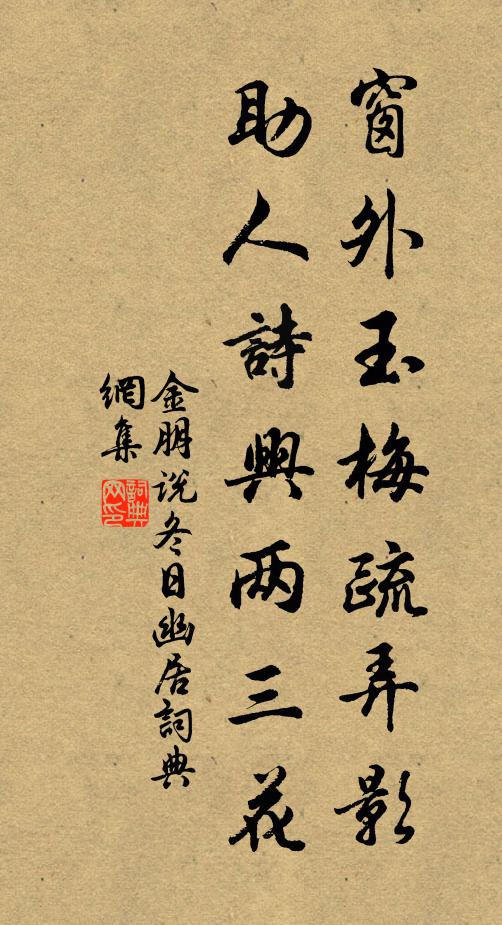 窗外玉梅疏弄影
助人詩興两三花
金朋说冬日幽居詞典
網集
詞典
网印